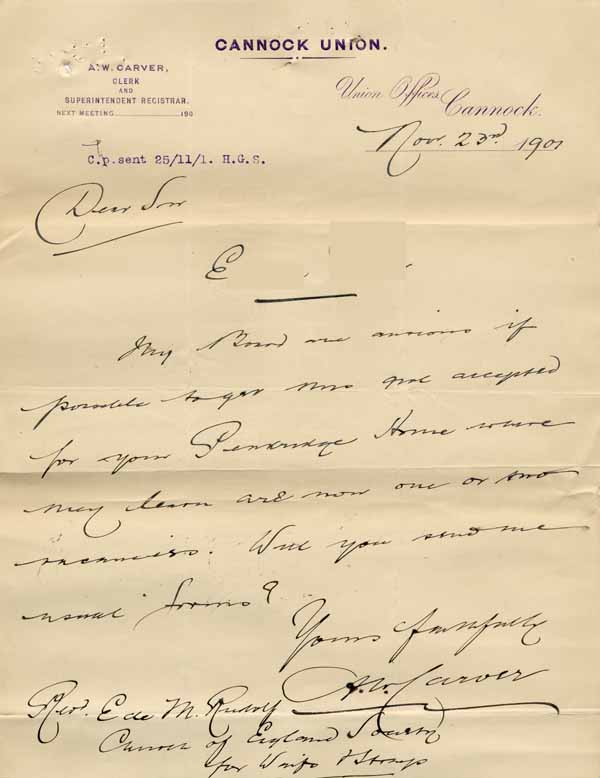 CANNOCK UNION.
A. W. CARVER,
CLERK
AND
SUPERINTENDENT REGISTRAR.
NEXT MEETING 190
Union Offices,
Cannock.
Nov. 23rd 1901
C.p.sent 25/11/1. H.G.S.
Dear Sir
E
My Board are anxious if
possible to get this girl accepted
for your Penkridge Home where
they learn are now one or two
vacancies. Will you send me
usual forms?
Yours faithfully
A.W. Carver
Revd. E de M. Rudolf
Church of England Society
for Waifs & Strays